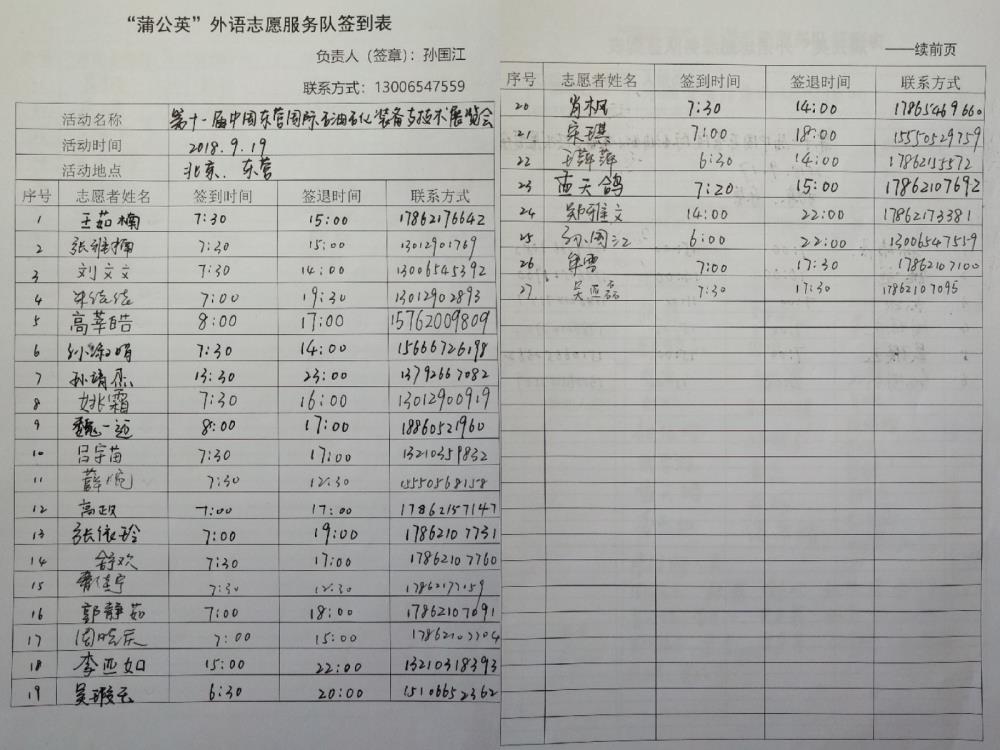 “蒲公英”外语志愿服务队签到表
负责人（签章）：孙国江
联系方式：13006547559
活动名称 第十一届中国东营国际石油石化装备与技术展览会
活动时间 2018.9.19
活动地点 北京、东营
序号 志愿者姓名 签到时间 签退时间 联系方式
1 王茹楠 7:30 15:00 17862176642
2 张雅楠 7:30 15:00 13012901769
3 刘文文 7:30 14:00 13006545392
4 7:00 19:30 13012902893
5 高莘皓 8:00 17:00 15762009809
6 7:30 14:00 15666726198
7 孙靖杰 13:30 23:00 13792667082
8 姚霜 7:30 16:00 13012900919
9 魏一迈 8:00 17:00 18860521960
10 吕宇苗 7:30 17:00 13210359832
11 薛 7:30 12:30 15550568158
12 高 7:00 17:00 17862157147
13 张依玲 7:00 19:00 17862107731
14 舒欢 7:30 17:00 17862107760
15 7:30 12:30
16 郭静茹 7:00 18:00 17862107091
17 周晓庆 7:00 15:00
18 李亚如 15:00 22:00 13210318393
19 吴璇云 6:30 20:00 15106652362
——续前页
序号 志愿者姓名 签到时间 签退时间 联系方式
20 肖枫 7:30 14:00 17865469660
21 宋琪 7:00 18:00 15550529759
22 王萍萍 6:30 14:00 17862155572
23 蓝天鸽 7:20 15:00 17862107692
24 郑雅文 14:00 22:00 17862173381
25 孙国江 6:00 22:00 13006547559
26 牟雪 7:00 17:30 17862107100
27 吴亚磊 7:30 17:30 17862107095